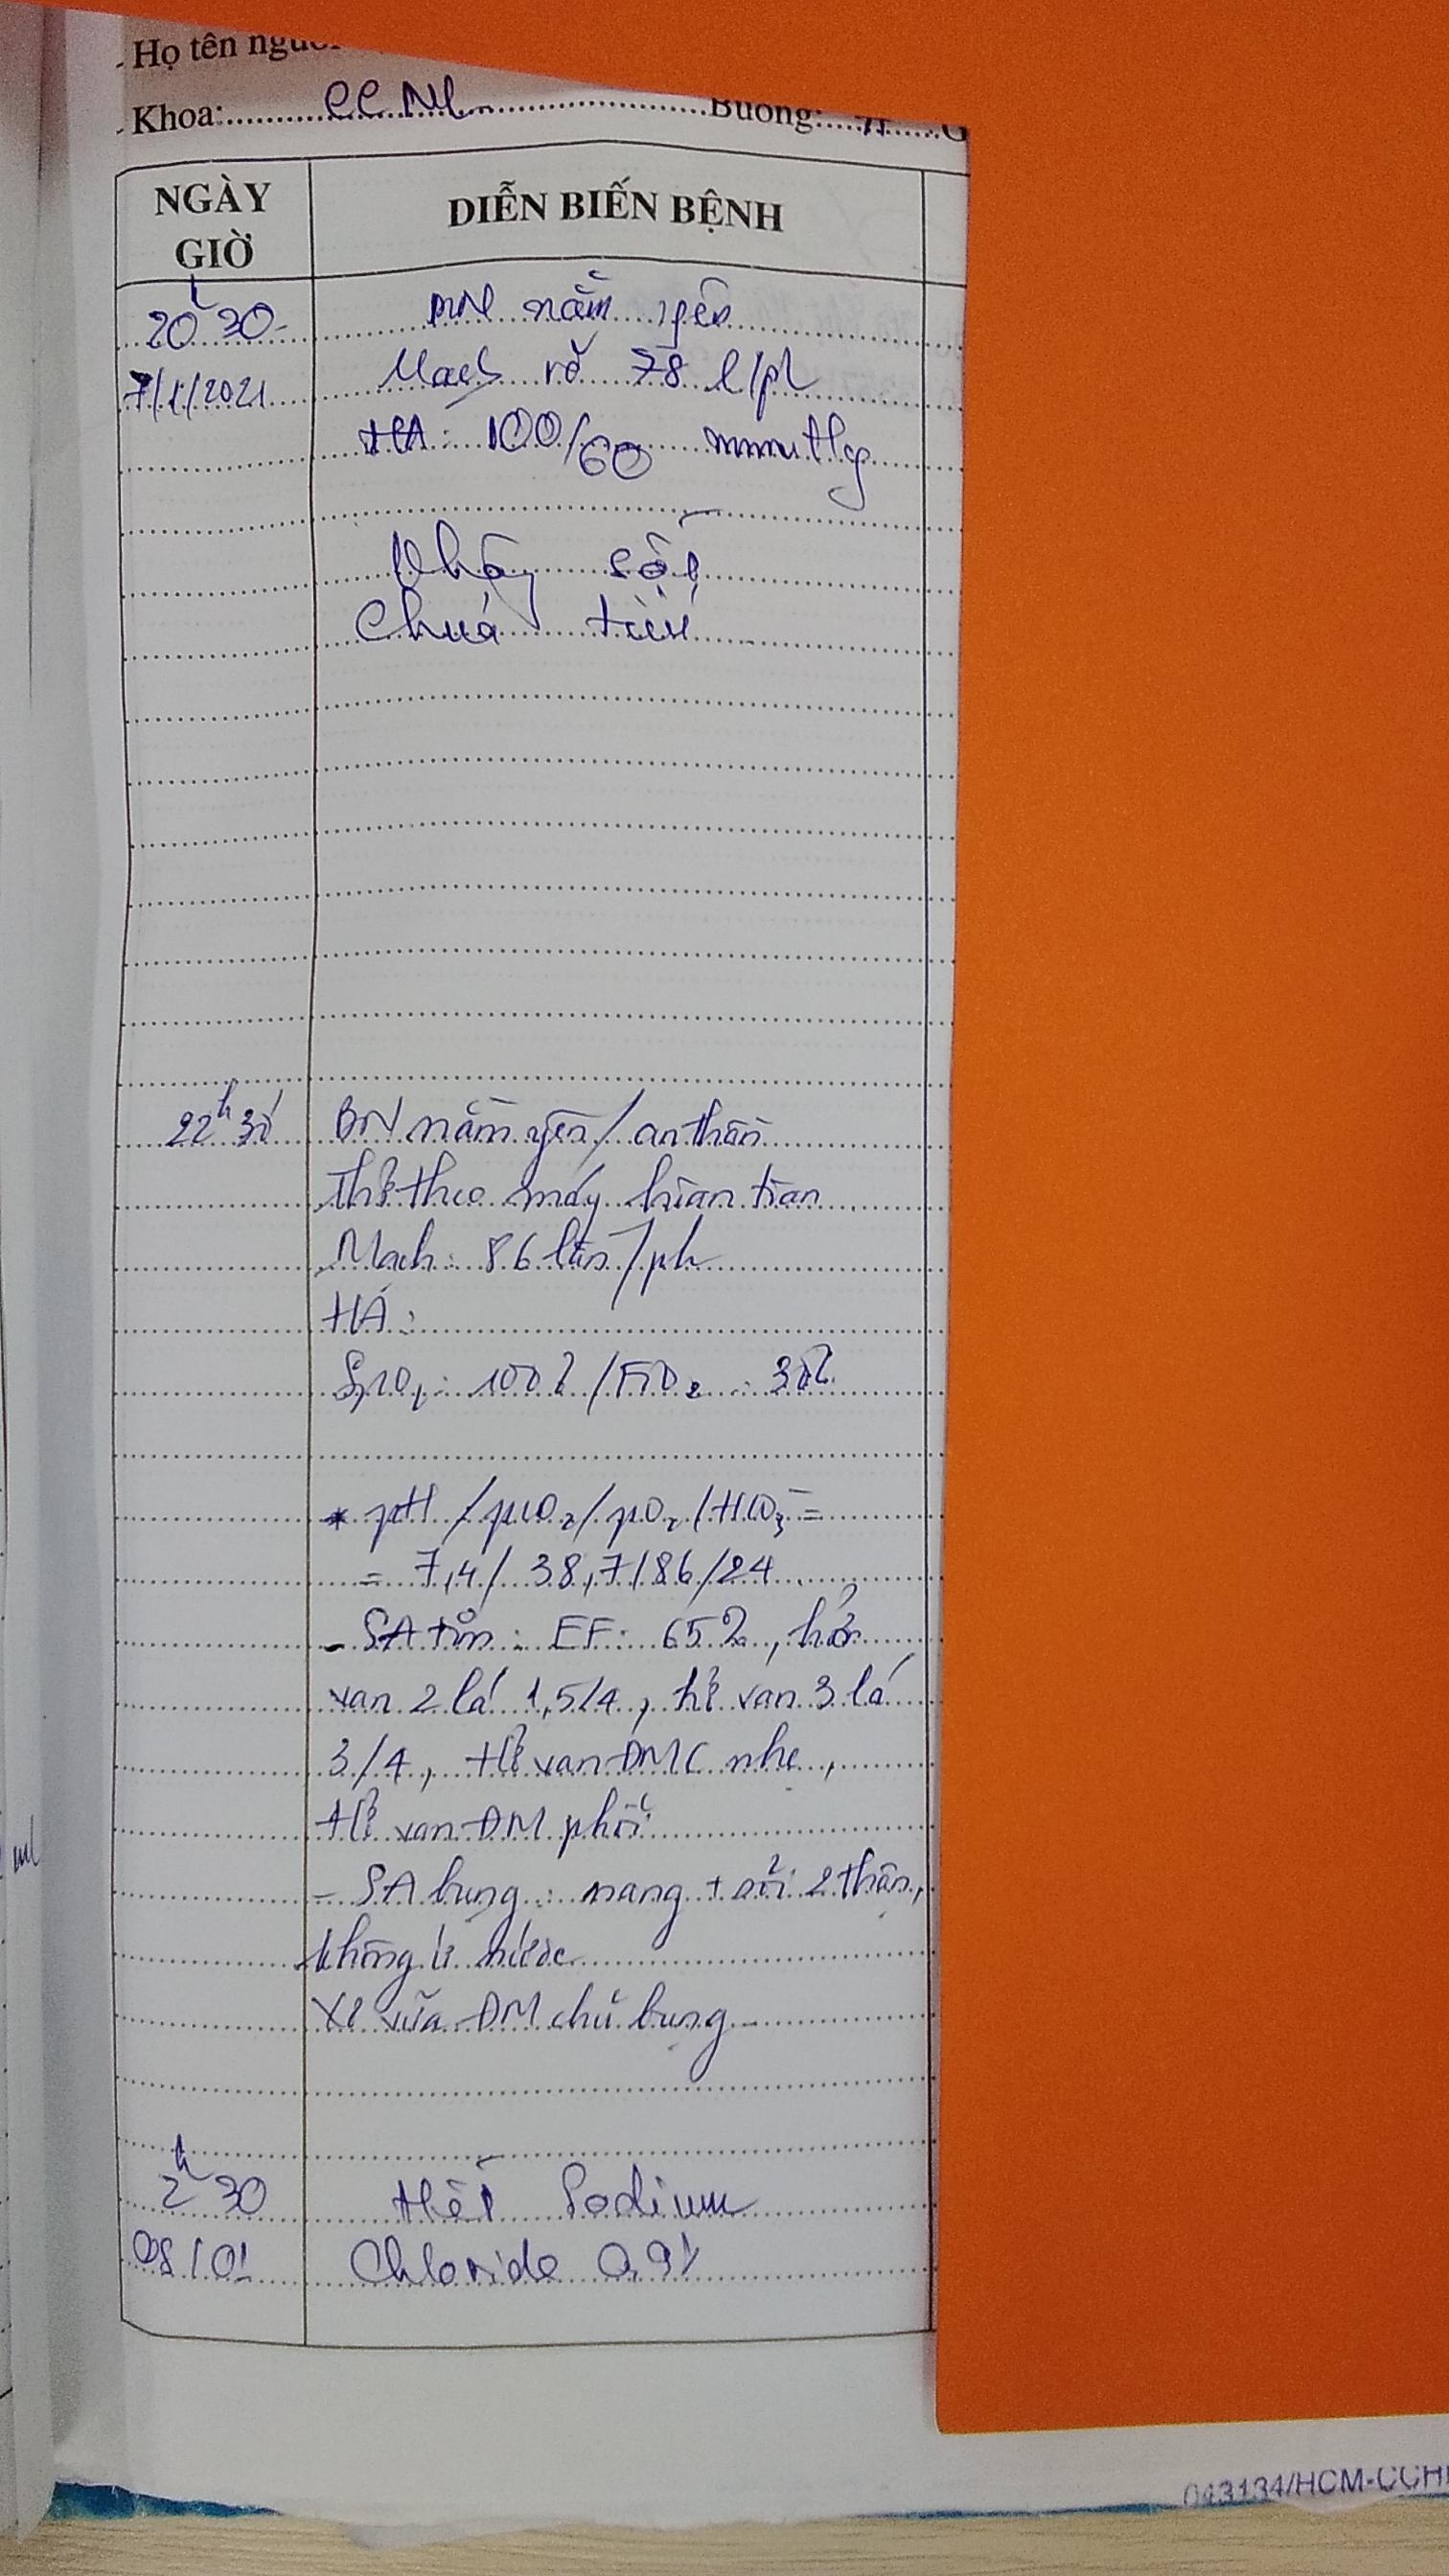 Họ tên người
Khoa: CCNL Buồng: 
NGÀY GIỜ
DIỄN BIẾN BỆNH
20h30
BN nằm yên
7/1/2021
Mạch rõ 78 l/ph
HA: 100/60 mmHg
Chưa tiểu
22h30
BN nằm yên / an thần
Thở theo máy hoàn toàn
Mạch: 86 lần/ph
HA:
SpO2: 100% / FiO2: 30%
* pH / pCO2 / pO2 / HCO3- =
= 7,4 / 38,7 / 86 / 24
- SA tim: EF: 65%, hở
van 2 lá 1,5/4, hở van 3 lá
3/4, Hở van ĐMC nhẹ,
Hở van ĐM phổi
- SA bụng: nang + sỏi 2 thận,
không ứ nước
Xơ vữa ĐM chủ bụng
2h30
Hết Sodium
08/01
Chloride 0,9%
ml
043134/HCM-CCH